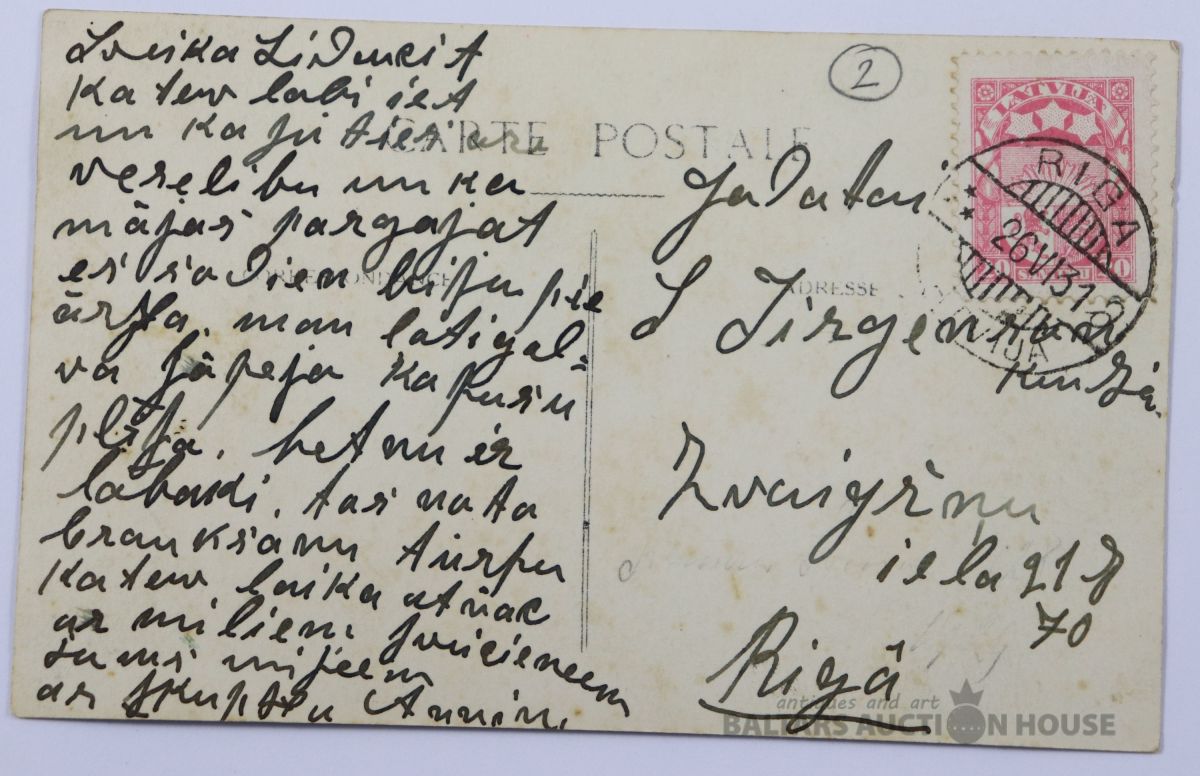 Sveika Liducit
Ka tew labi iet
un ka jūties ar
veselibu un ka
mājas pargajat
es sodien biju pie
ārsta. man loti gal=
va jāpeja ka pusu
plīsa. bet nu ir
labaki. tas no ta
braukšanu turpu
Ka tew laika atnāc
ar miliem sveicieneem
jums mijeem
ar skupstu Annin,
CARTE POSTALE
CORRESPONDANCE
ADRESSE
2
LATVIJA
RIGA
26 VI 31
Jadatai
L Jirgenson
kundzā.
Zvaigšņu
iela 21 dz
70
Rigā
antiques and art
BALTARS AUCTION HOUSE